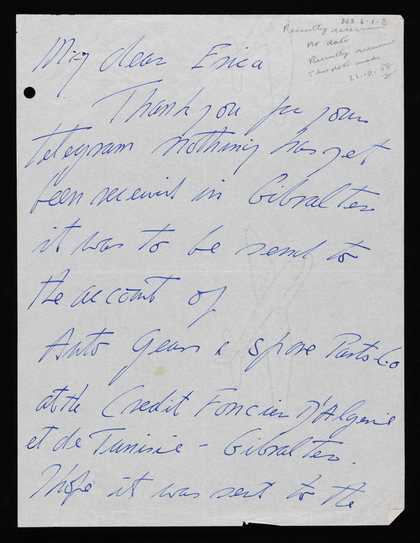 My dear Erica
Thank you for your
telegram nothing has yet
been received in Gibralter
it was to be send to
the account of
Auto Gears & Spare Parts Co
at the Credit Foncier D'Algerie
et de Tunisie - Gibralter.
Hope it was sent to the
Recently
no date
Recently